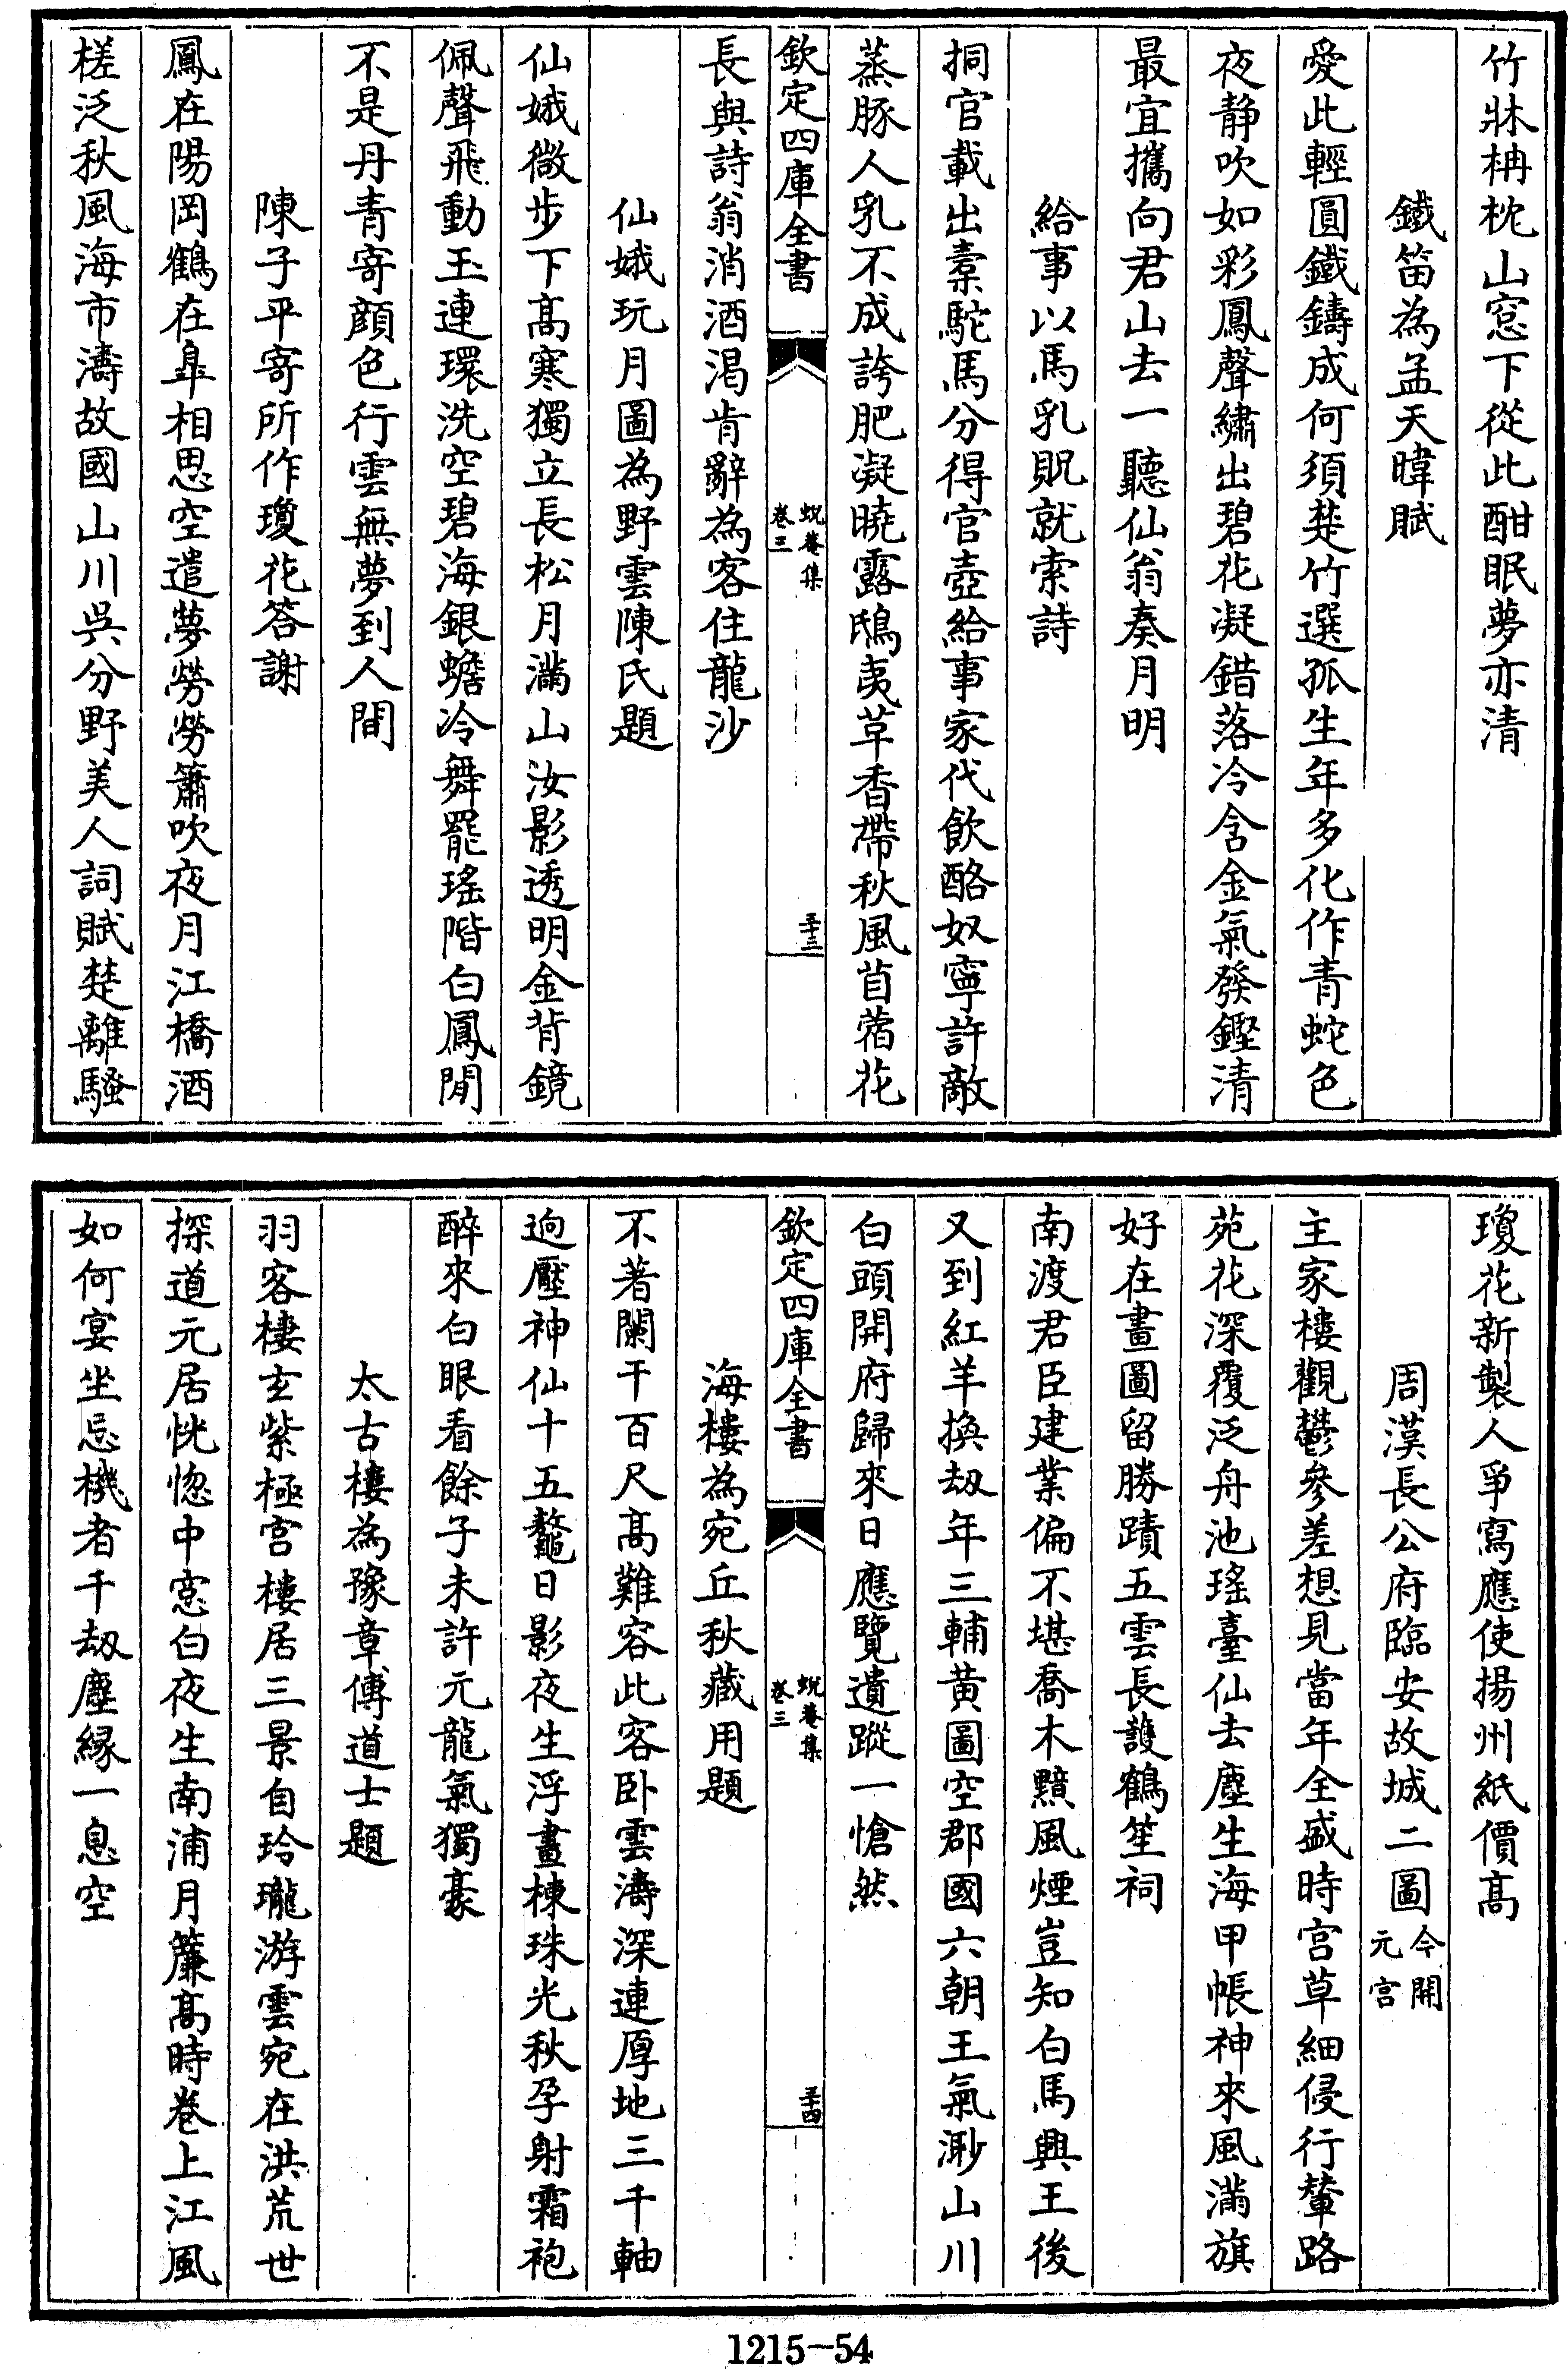 竹牀枏枕山窓下從此酣眠夢亦清
鐵笛為孟天暐賦
愛此輕圓鐵鑄成何須楚竹選孤生年多化作青蛇色
夜静吹如彩鳳聲繡出碧花凝錯落冷含金氣發鏗清
最宜攜向君山去一聽仙翁奏月明
給事以馬乳貺就索詩
挏官載出橐駝馬分得官壺給事家代飲酪奴寧許敵
蒸豚人乳不成誇肥凝曉露鴟夷草香帶秋風苜蓿花
欽定四庫全書
蛻菴集
卷三
三十三
長與詩翁消酒渴肯辭為客住龍沙
仙娥玩月圖為野雲陳氏題
仙娥微步下髙寒獨立長松月滿山汝影透明金背鏡
佩聲飛動玉連環洗空碧海銀蟾冷舞罷瑤階白鳳閒
不是丹青寄顔色行雲無夢到人間
陳子平寄所作瓊花答謝
鳳在陽岡鶴在皐相思空遣夢勞勞簫吹夜月江橋酒
槎泛秋風海市濤故國山川吳分野美人詞賦楚離騷
瓊花新製人爭寫應使揚州紙價髙
周漢長公府臨安故城二圖
今開
元宫
主家樓觀鬱參差想見當年全盛時宫草細侵行輦路
苑花深覆泛舟池瑤臺仙去塵生海甲帳神來風滿旗
好在畫圖留勝蹟五雲長護鶴笙祠
南渡君臣建業偏不堪喬木黯風煙豈知白馬興王後
又到紅羊換刼年三輔黄圖空郡國六朝王氣渺山川
白頭開府歸來日應覽遺蹤一愴然
欽定四庫全書
蛻菴集
卷三
三十四
海樓為宛丘秋藏用題
不著闌干百尺髙難容此客卧雲濤深連厚地三千軸
逈壓神仙十五鼇日影夜生浮畫棟珠光秋孕射霜袍
醉來白眼看餘子未許元龍氣獨豪
太古樓為豫章傅道士題
羽客棲玄紫極宫樓居三景自玲瓏游雲宛在洪荒世
探道元居恍惚中窓白夜生南浦月簾髙時卷上江風
如何宴坐忌機者千刼塵縁一息空
1215—54